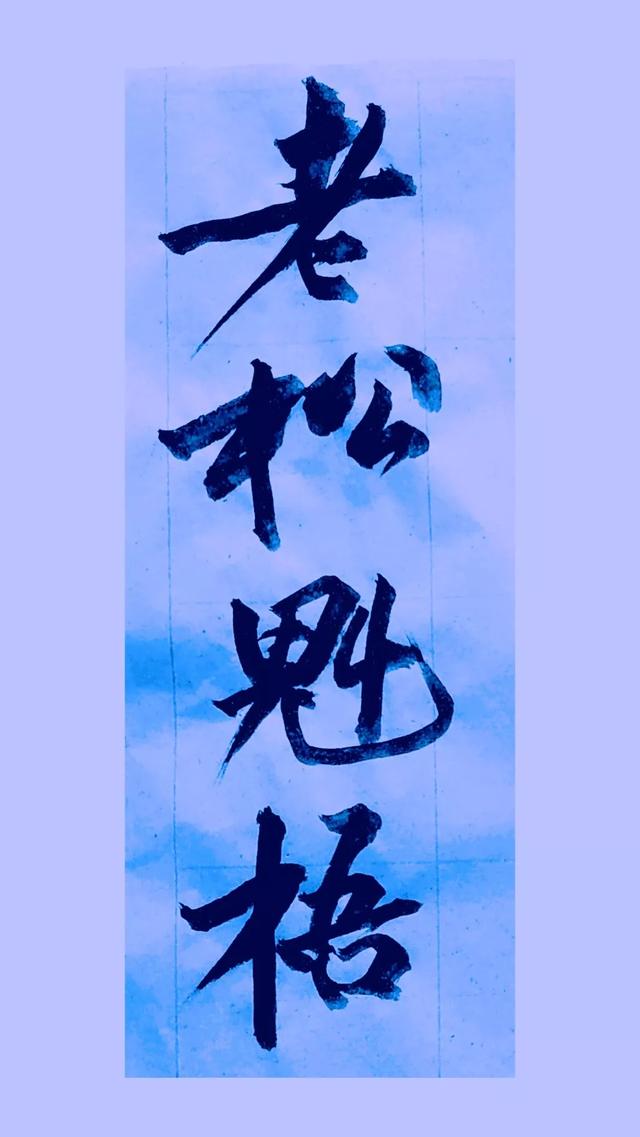 老松魁梧